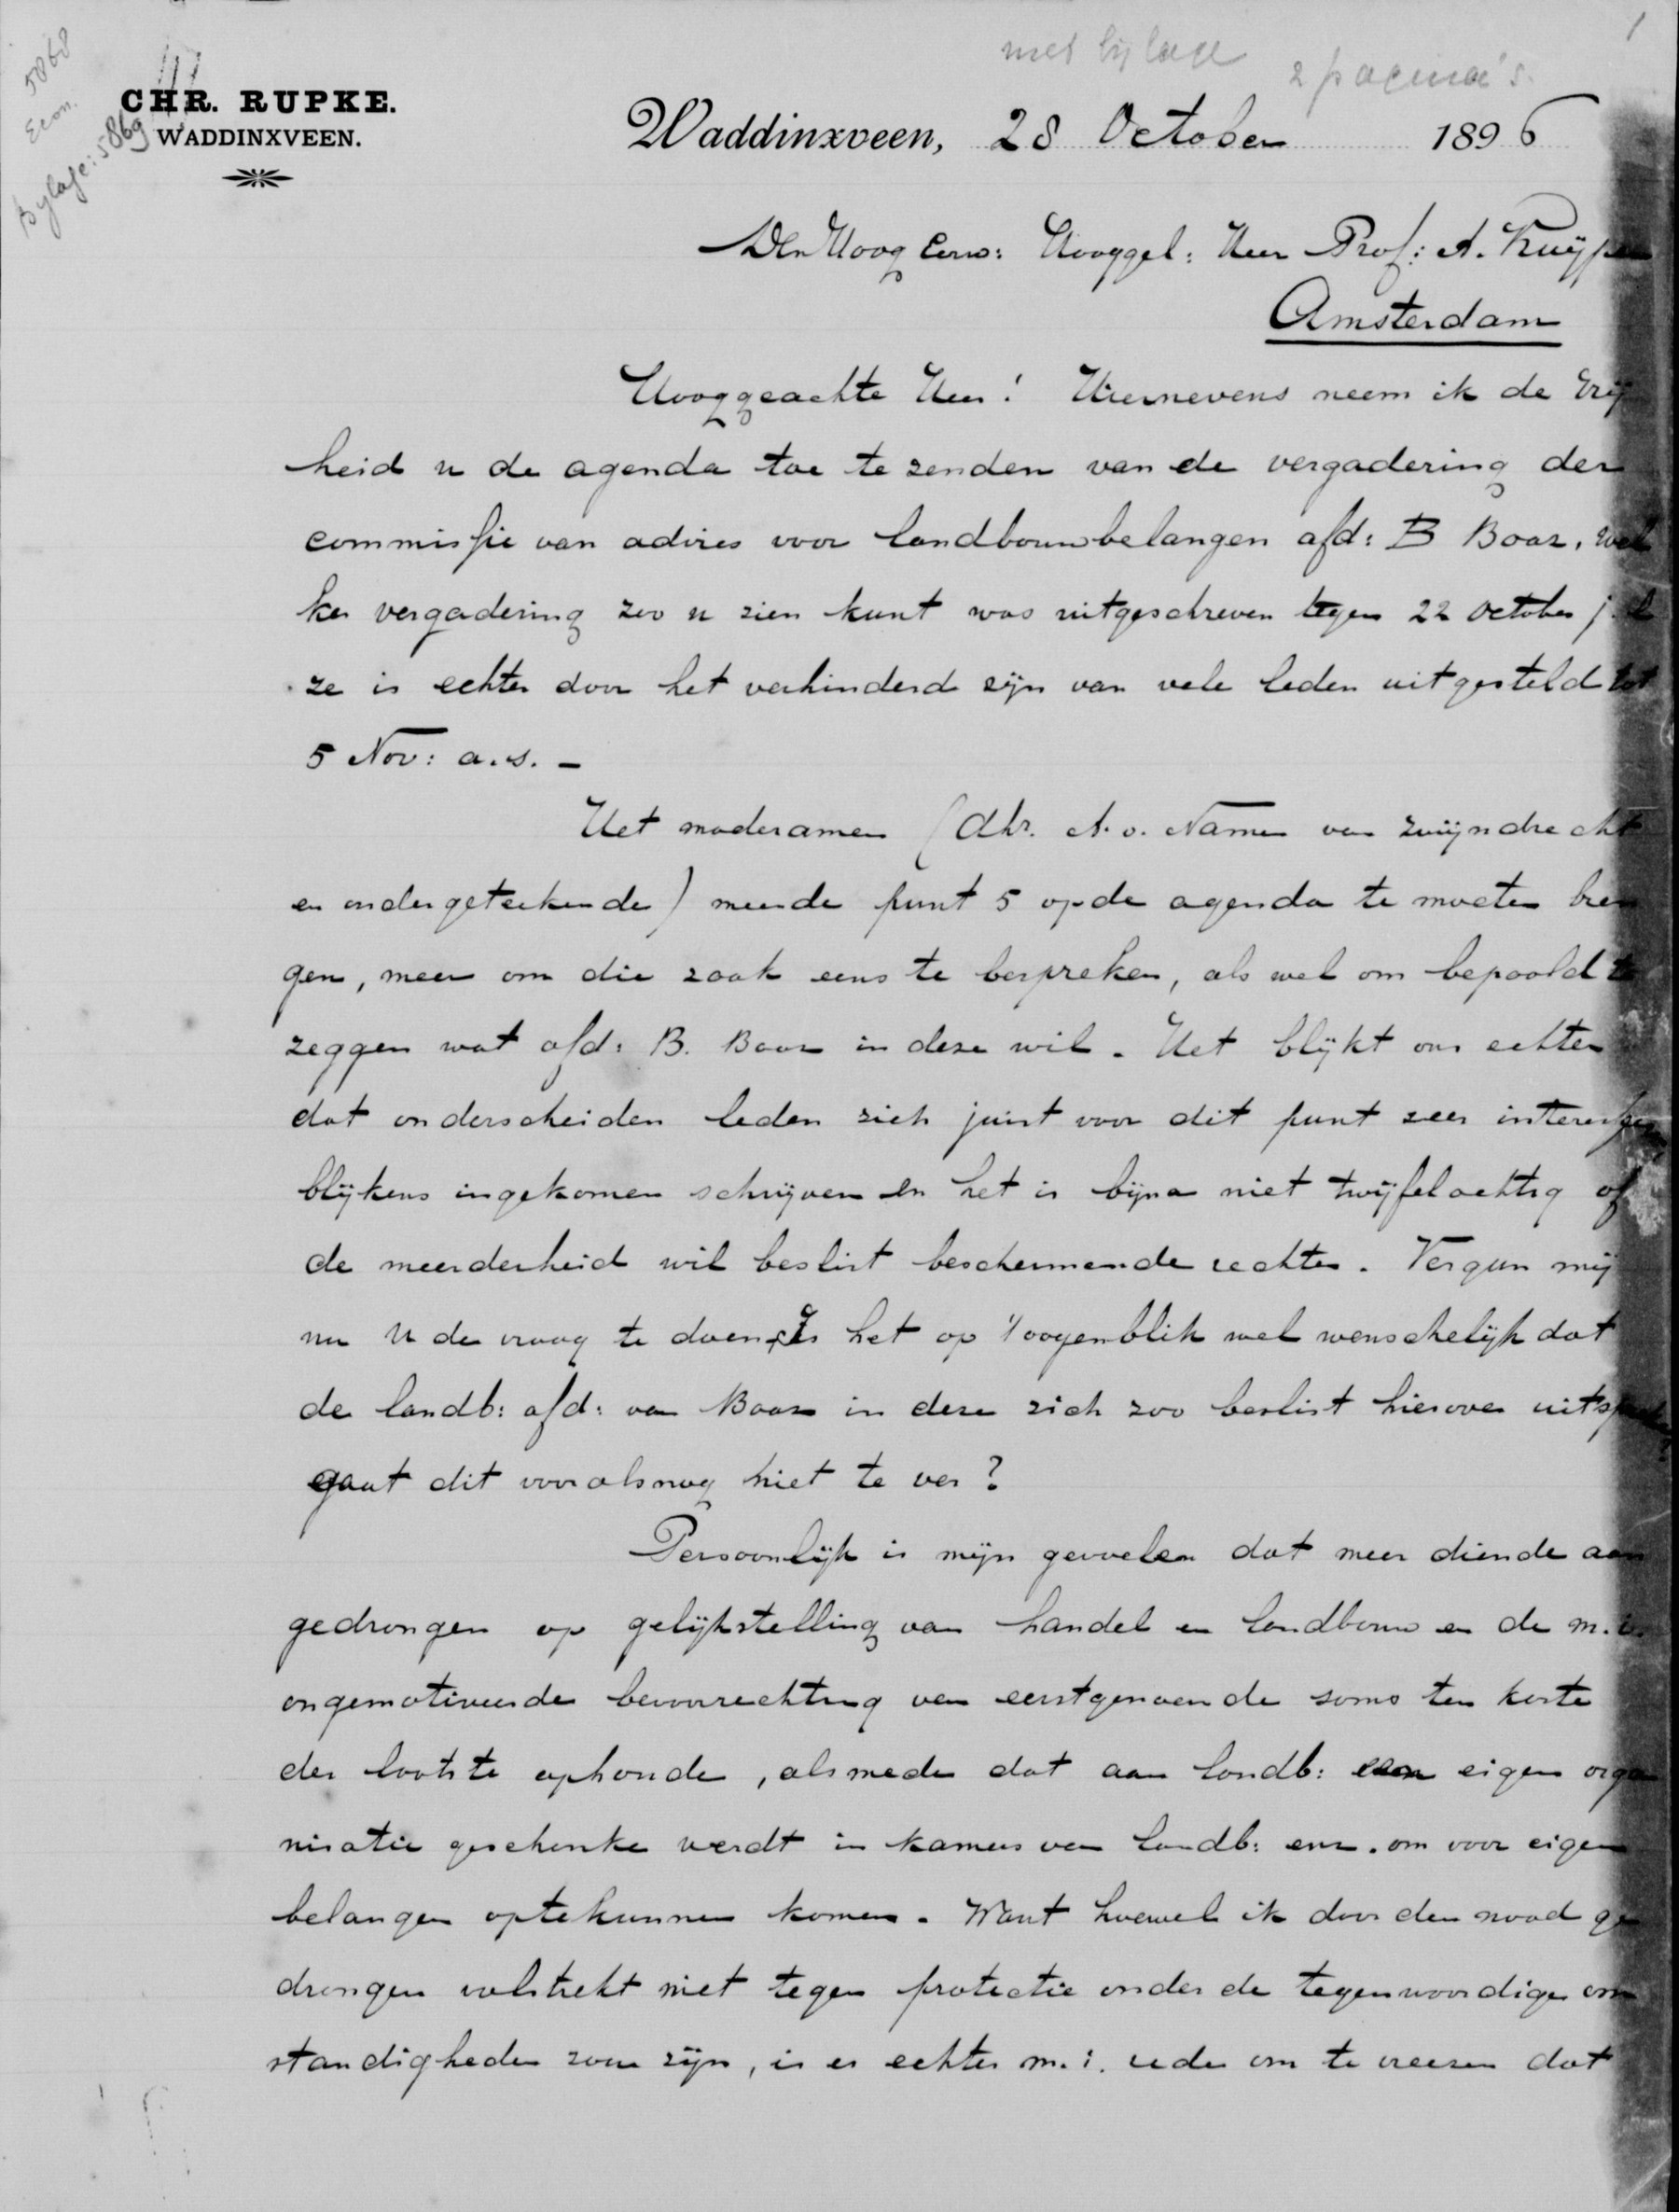 1
met bylage
2 pagina's.
5868
Econ.
Bylage: 5869
CHR. RUPKE.
WADDINXVEEN.
Waddinxveen, 28 October 1896
Den Hoog Eerw: Hooggel: Heer Prof: A. Kuyper
Amsterdam
Hooggeachte Heer! Hiernevens neem ik de vrij
heid u de agenda toe te zenden van de vergadering der
commissie van advies voor landbouwbelangen afd: B Boaz, wel
ke vergadering zoo u zien kunt was uitgeschreven tegen 22 October j.l
ze is echter door het verhinderd zijn van vele leden uitgesteld tot
5 Nov: a.s. –
Het moderamen (dhr. A. v. Namen van Zwijndrecht
en ondergeteekende) meende punt 5 op de agenda te moeten bren
gen, meer om die zaak eens te bespreken, als wel om bepaald te
zeggen wat afd: B. Boaz in deze wil. Het blijkt ons echter
dat onderscheiden leden zich juist voor dit punt zeer
blijkens ingekomen schrijven en het is bijna niet twijfelachtig of
de meerderheid wil beslist beschermende rechten. Vergun mij
nu U de vraag te doen, Is het op 't oogenblik wel wenschelijk dat
de landb: afd: van Boaz in deze zich zoo beslist hierover
gaat dit vooralsnog niet te ver?
Persoonlijk is mijn gevoelen dat meer diende aan
gedrongen op gelijkstelling van handel en landbouw en de m.i.
ongemotiveerde bevoorrechting van eerstgenoemde soms ten koste
der laatste ophoude, alsmede dat aan landb: een eigen orga
nisatie geschonke werdt in kamers van landb: enz. om voor eigen
belangen optekunnen komen. Want hoewel ik door den nood ge
drongen volstrekt niet tegen protectie onder de tegenwoordige om
standigheden zou zijn, is er echter m.i. rede om te vreezen dat